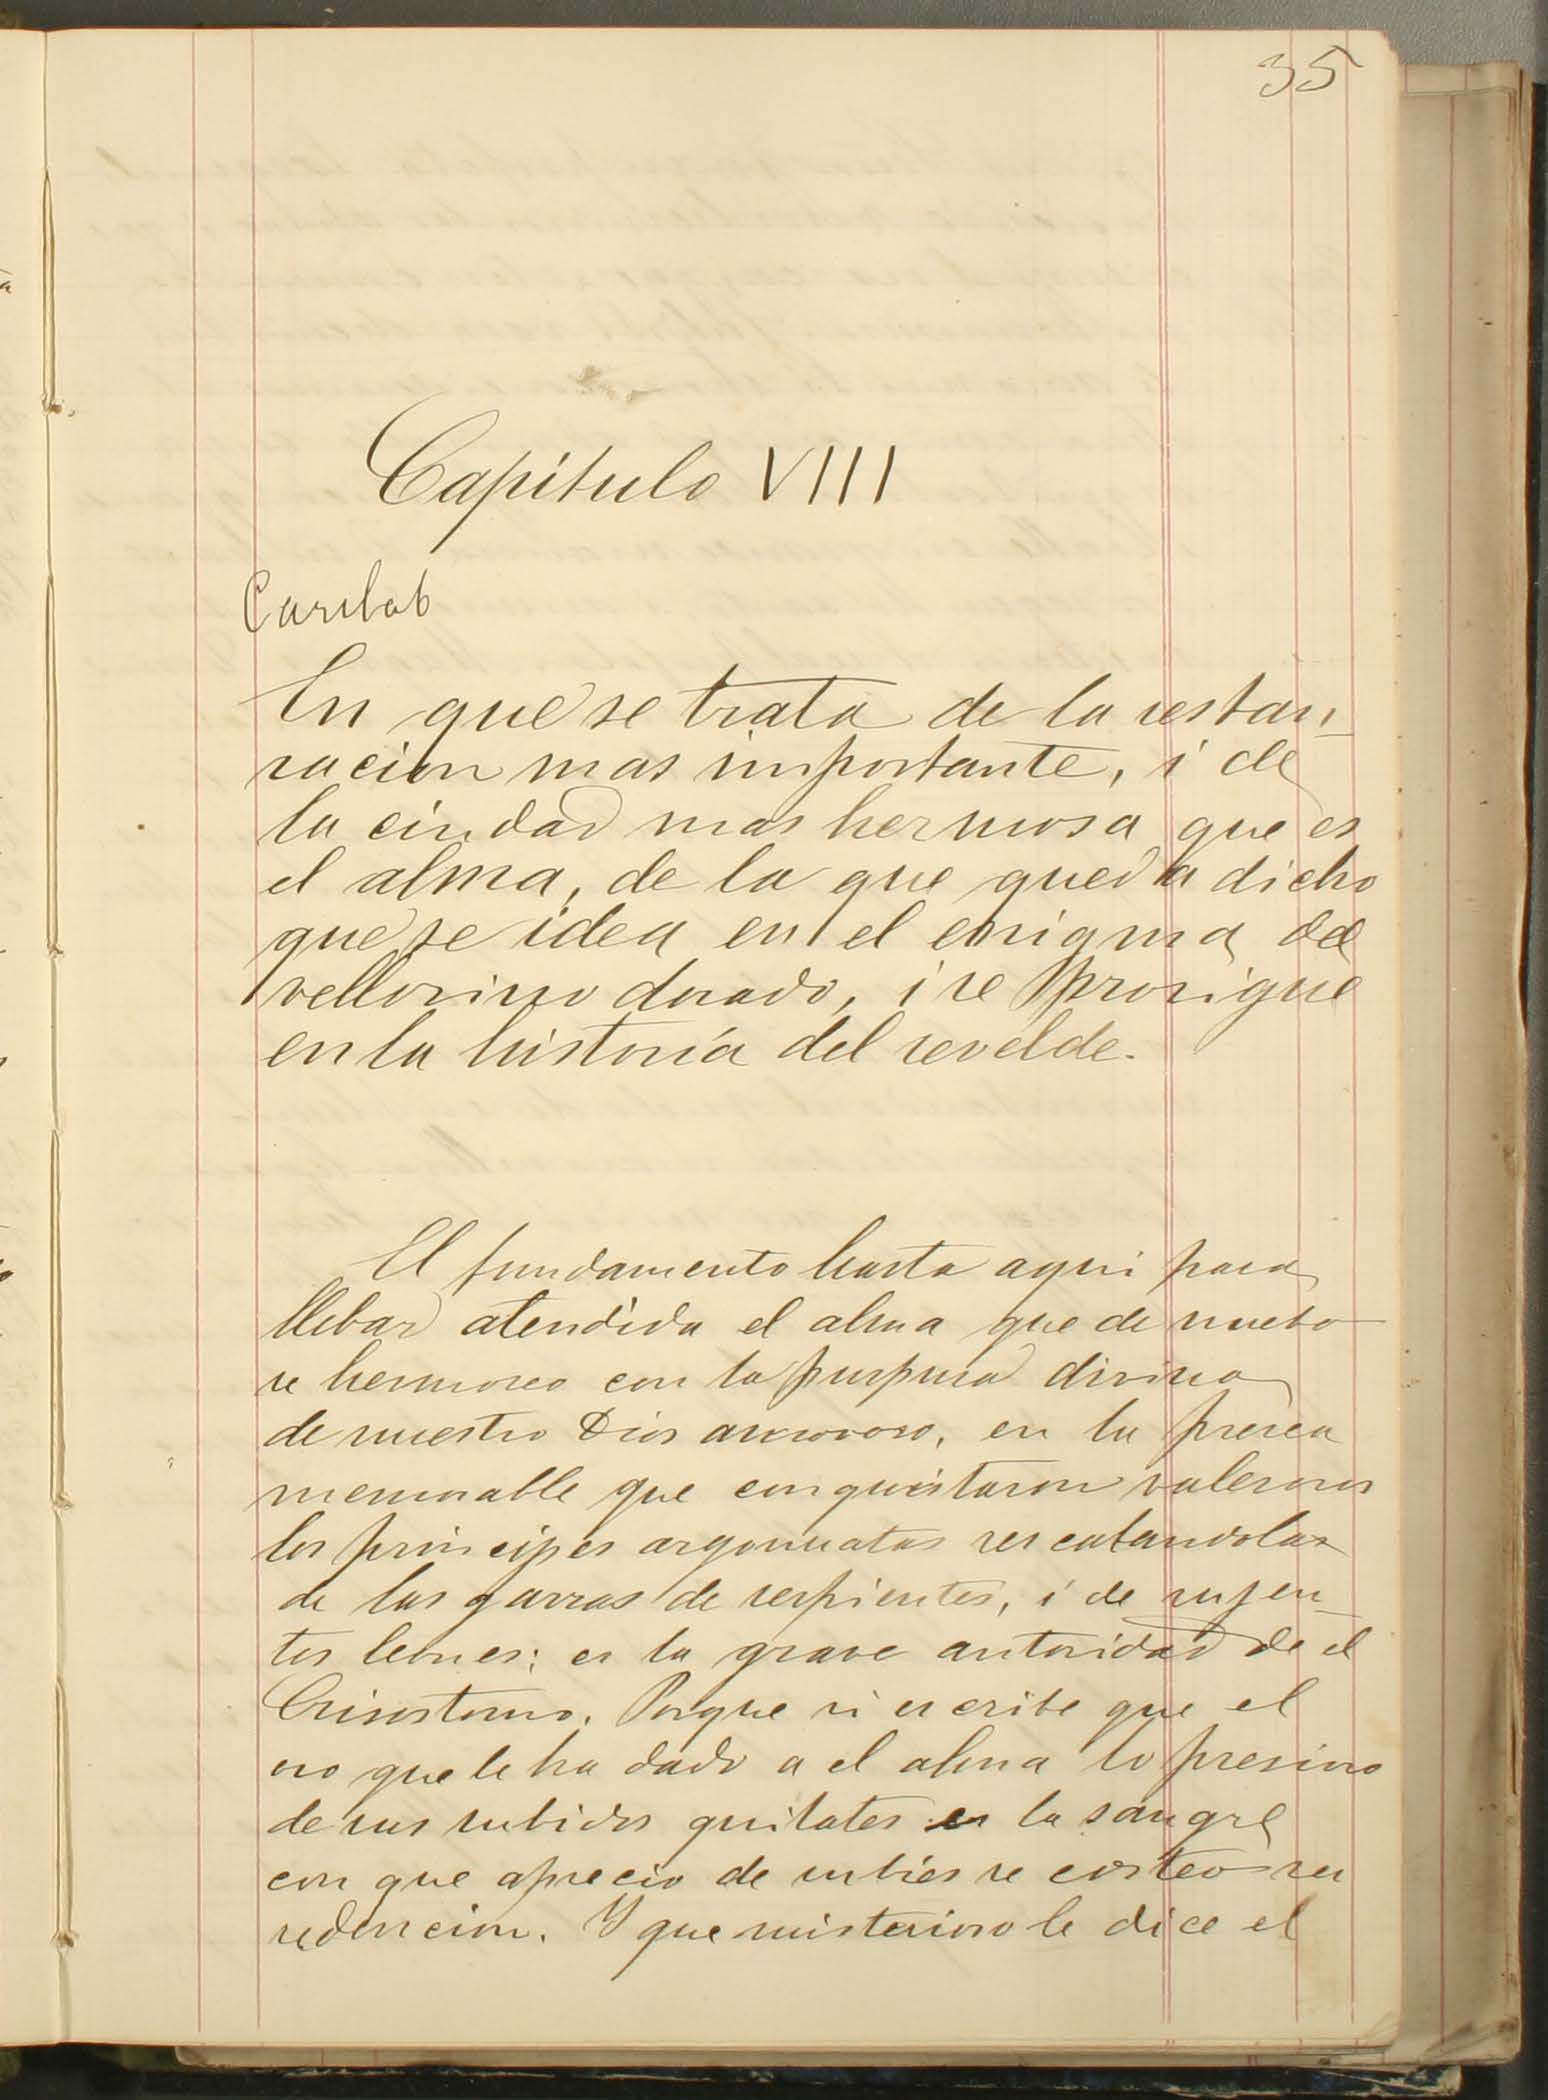 35
Capitulo VIII
En que se trata de la restau-
racion mas importante, i de
la ciudad mas hermosa que es
el alma, de la que queda dicho
que se idea en el enigma del
vellorino dorado, i se prosigue
en la historia del revelde.
El fundamento hasta aqui para
llebar atendida el alma que de nuebo
se hermoseo con la purpura divina
de nuestro Dios amoroso, en la presea
memorable que conquistaron valerosos
los principes argonuatas rescatandolas
de las garras de serpientes, i de rujen-
tes leones; es la grave autoridad de el
Crisostomo. Porque si escribe que el
oro que le ha dado a el alma lo presioso
de sus subidos quilates es la sangre
con que aprecio de rubies se costeo su
redencion. Y que misterioso le dice el